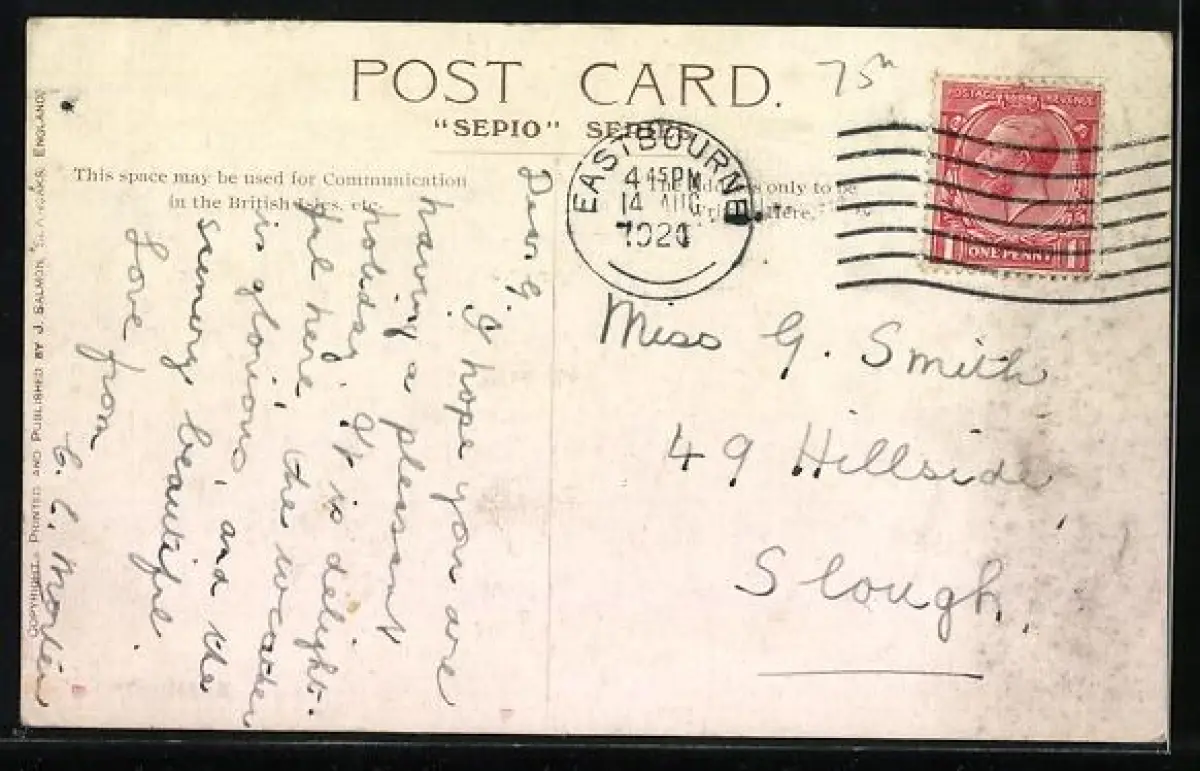 POST CARD.
"SEPIO" SERIES
75
This space may be used for Communication
in the British Isles, etc.
The Address only to be
Here.
EASTBOURNE
4 45 PM
14 AUG
192
POSTAGE REVENUE
1 ONE PENNY 1
Dear G.
I hope you are
having a pleasant
holiday. It is delight-
ful here, the weather
is glorious, and the
scenery beautiful.
Love from
Miss G. Smith
49 Hillside
Slough.
COPYRIGHT. PRINTED AND PUBLISHED BY J. SALMON, SEVENOAKS, ENGLAND.